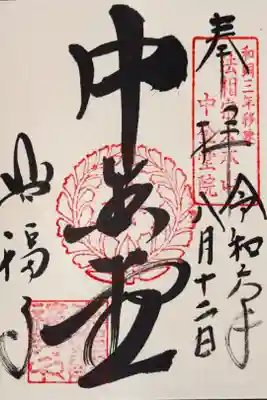 奉拝
令和六年
八月十二日
和銅三年
法相宗大本山
中金堂院
中金堂
興福寺